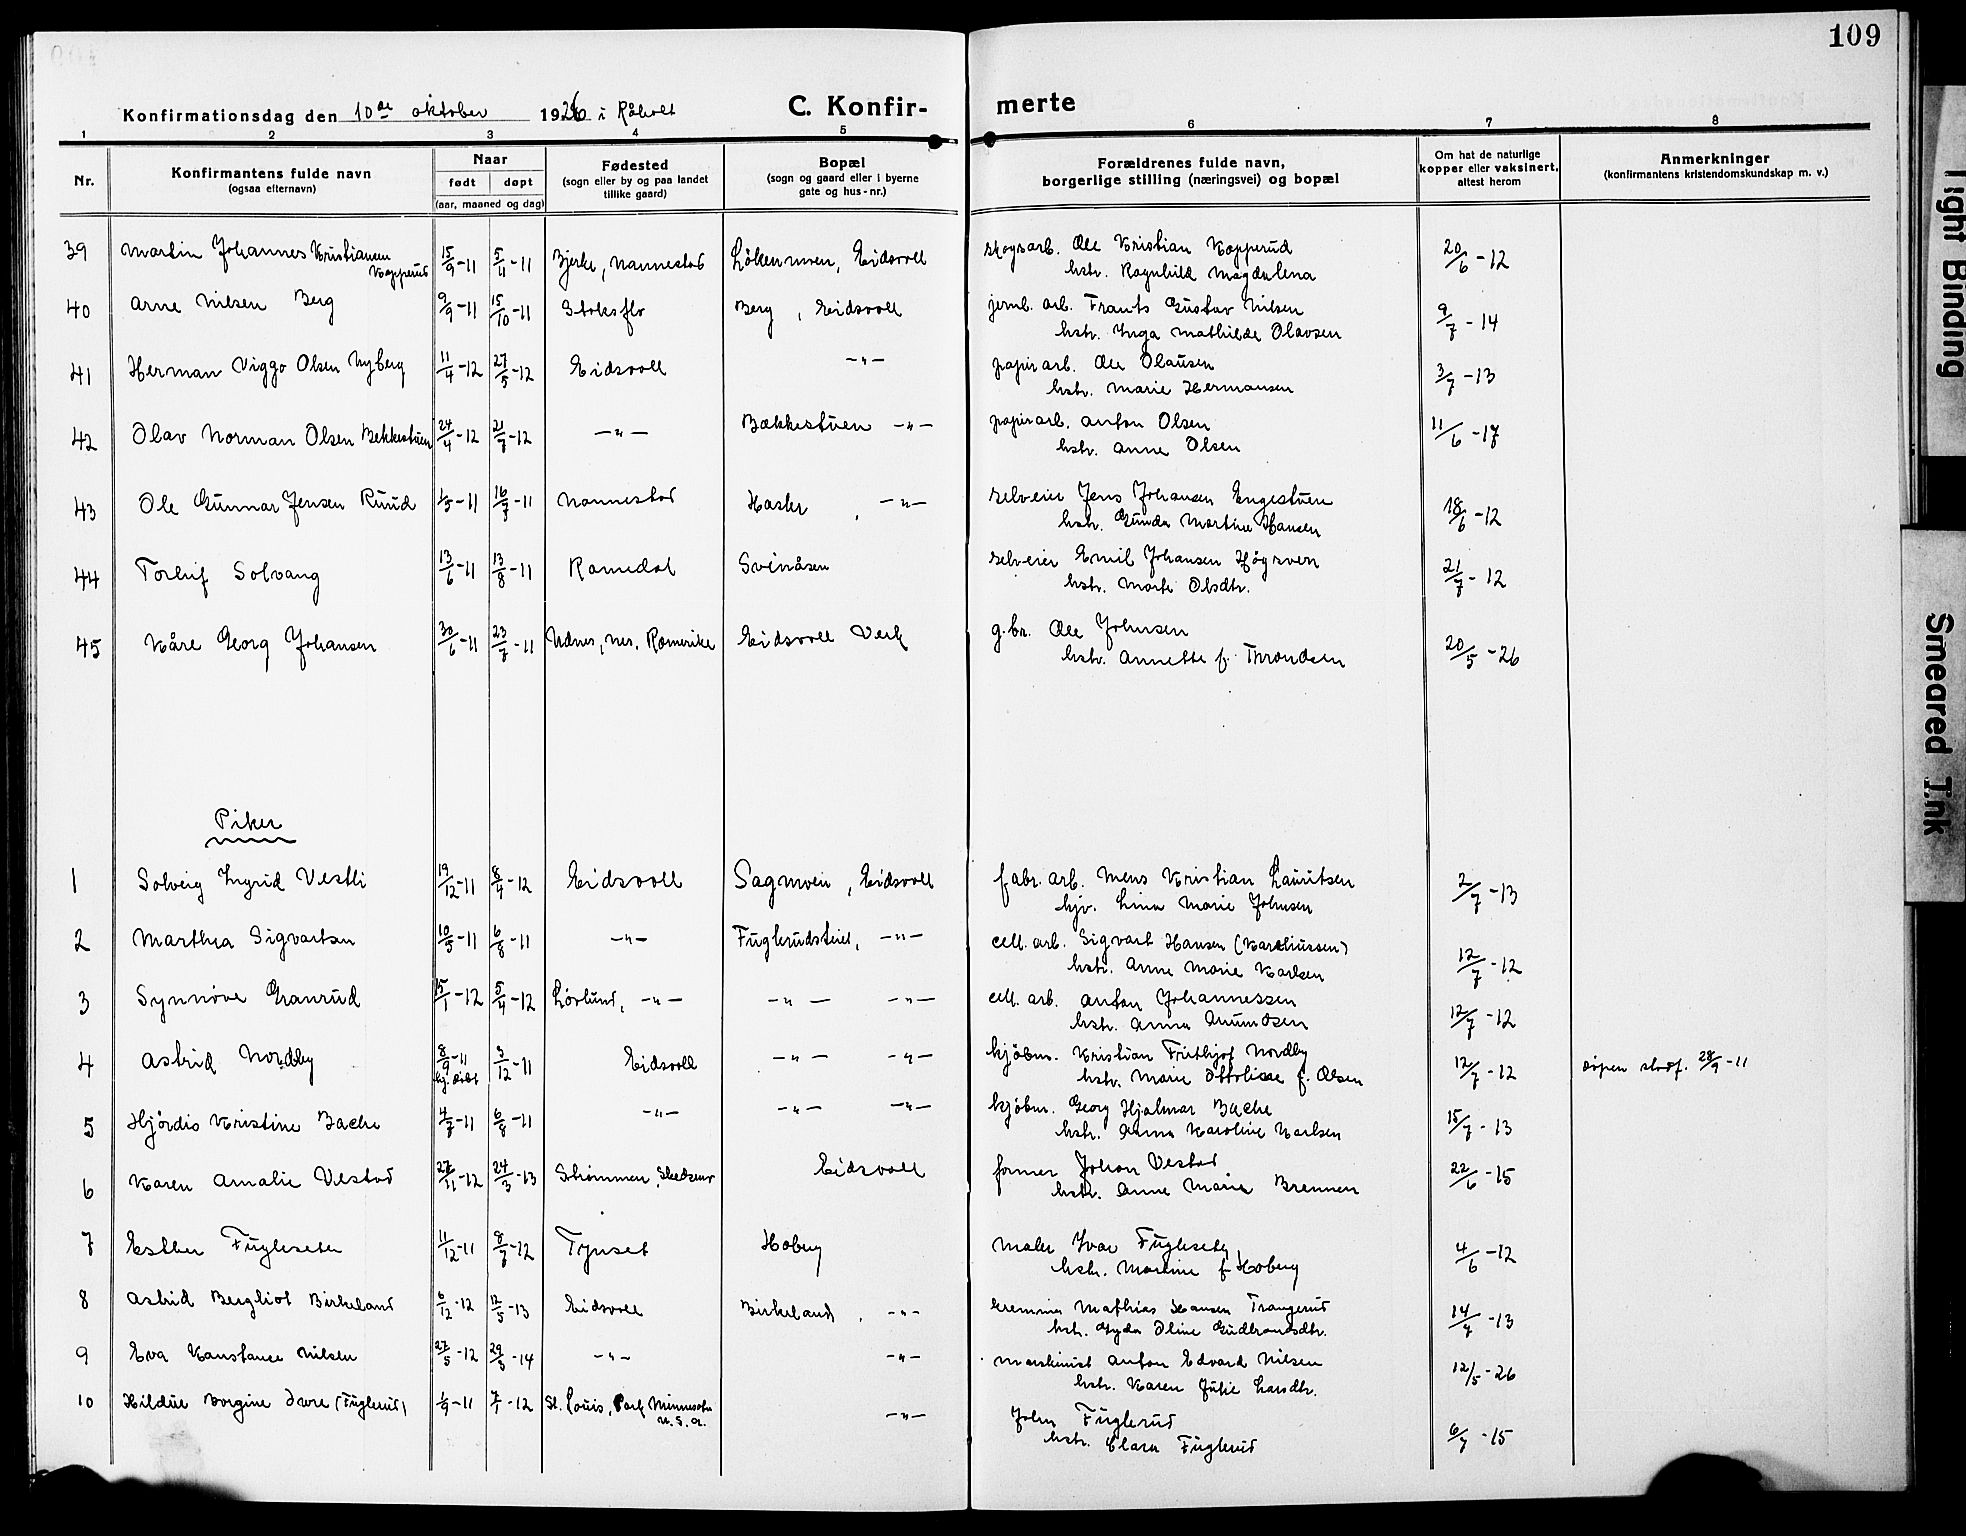 109
Konfirmationsdag den 10de oktober 1926 i Råholt
C. Konfir- merte
1 2 3 4 5 6 7 8
Nr.
Konfirmantens fulde navn
(ogsaa efternavn)
Naar
født døpt
(aar, maaned og dag)
Fødested
(sogn eller by og paa landet
tillike gaard)
Bopæl
(sogn og gaard eller i byerne
gate og hus-nr.)
Forældrenes fulde navn,
borgerlige stilling (næringsvei) og bopæl
Om hat de naturlige
kopper eller vaksinert,
attest herom
Anmerkninger
(konfirmantens kristendomskundskap m. v.)
39 Martin Johannes Kristiansen Kopperud 15/9-11 5/11-11 Bjerke, Nannestad Løkenmoen, Eidsvoll skogsarb. Ole Kristian Kopperud 20/6-12
hstr. Ragnhild Magdalena
40 Arne Nilsen Berg 9/9-11 15/10-11 Berg, Eidsvoll jernb. arb. Frants Gustav Nilsen 9/7-14
hstr. Inga Mathilde Olavsen
41 Herman Viggo Olsen Nyberg 11/4-12 27/5-12 Eidsvoll -"- papirarb. Ole Olausen 3/7-13
hstr. Marie Hermansen
42 Olav Norman Olsen Bekkestuen 24/4-12 21/7-12 -"- Bækkestuen -"- papirarb. Anton Olsen 11/6-17
hstr. Anne Olsen
43 Ole Gunnar Jensen Ruud 16/7-11 Nannestad Hasler, -"- selveier Jens Johansen Engestuen 18/6-12
hstr. Gunda Martine Hansen
44 Torleif Solvang 13/6-11 13/8-11 Romedal Svinåsen selveier Emil Johansen 21/7-12
hstr. Marte Olsdtr.
45 Kåre Georg Johansen 30/6-11 23/7-11 Udnes, Nes, Romerike Eidsvoll Verk g.br. Ole Johnsen 20/5-26
hstr. Annette f. Throndsen
Piker
1 Solveig Ingrid Vestli 19/12-11 8/4-12 Eidsvoll Sagmoen, Eidsvoll fabr. arb. Mens Kristian Lauritsen 2/7-13
hstr. Lina Marie Johnsen
2 Marthea Sigvartsen 10/5-11 6/8-11 -"- Fuglerudsteiet, -"- cell. arb. Sigvart Hansen (Kareliussen) 12/7-12
hstr. Anne Marie Karlsen
3 Synnøve Granrud 15/1-12 5/4-12 Lørlund, -"- -"- -"- cell. arb. Anton Johannessen 12/7-12
hstr. Anna Amundsen
4 Astrid Nordby 8/9-11 3/12-11 Eidsvoll -"- -"- kjøbm. Kristian Frithjof Nordby 12/7-12 dåpen stadf. 28/9-11
hj. døbt hstr. Marie Ottilie f. Olsen
5 Hjørdis Kristine Bache 4/7-11 6/8-11 -"- -"- -"- kjøbm. Georg Hjalmar Bache 15/7-13
hstr. Anna Karoline Karlsen
6 Karen Amalie Vestad 27/11-12 24/3-13 Strømmen, Skedsmo Eidsvoll former Johan Vestad 22/6-15
hstr. Anne Marie Brennen
7 Esther Fugleseter 11/12-11 8/7-12 Tynset Hoberg maler Ivar Fugleseter 4/6-12
hstr. Martine f. Hoberg
8 Astrid Bergliot Birkeland 6/12-12 12/5-13 Eidsvoll Birkeland, -"- kremmer Mathias Hansen Trangerud 14/7-13
hstr. Gyda Oline Gudbrandsdtr.
9 Eva Konstance Nilsen 27/5-12 29/3-14 -"- -"- maskinist Anton Edvard Nilsen 12/5-26
hstr. Karen Julie Larsdtr.
10 Hildur Borgine (Fuglerud) 1/9-11 7/1-12 St. Louis, Park Minnesota U.S.A. -"- John Fuglerud 6/7-15
hstr. Clara Fuglerud
Tight Binding
Smeared Ink